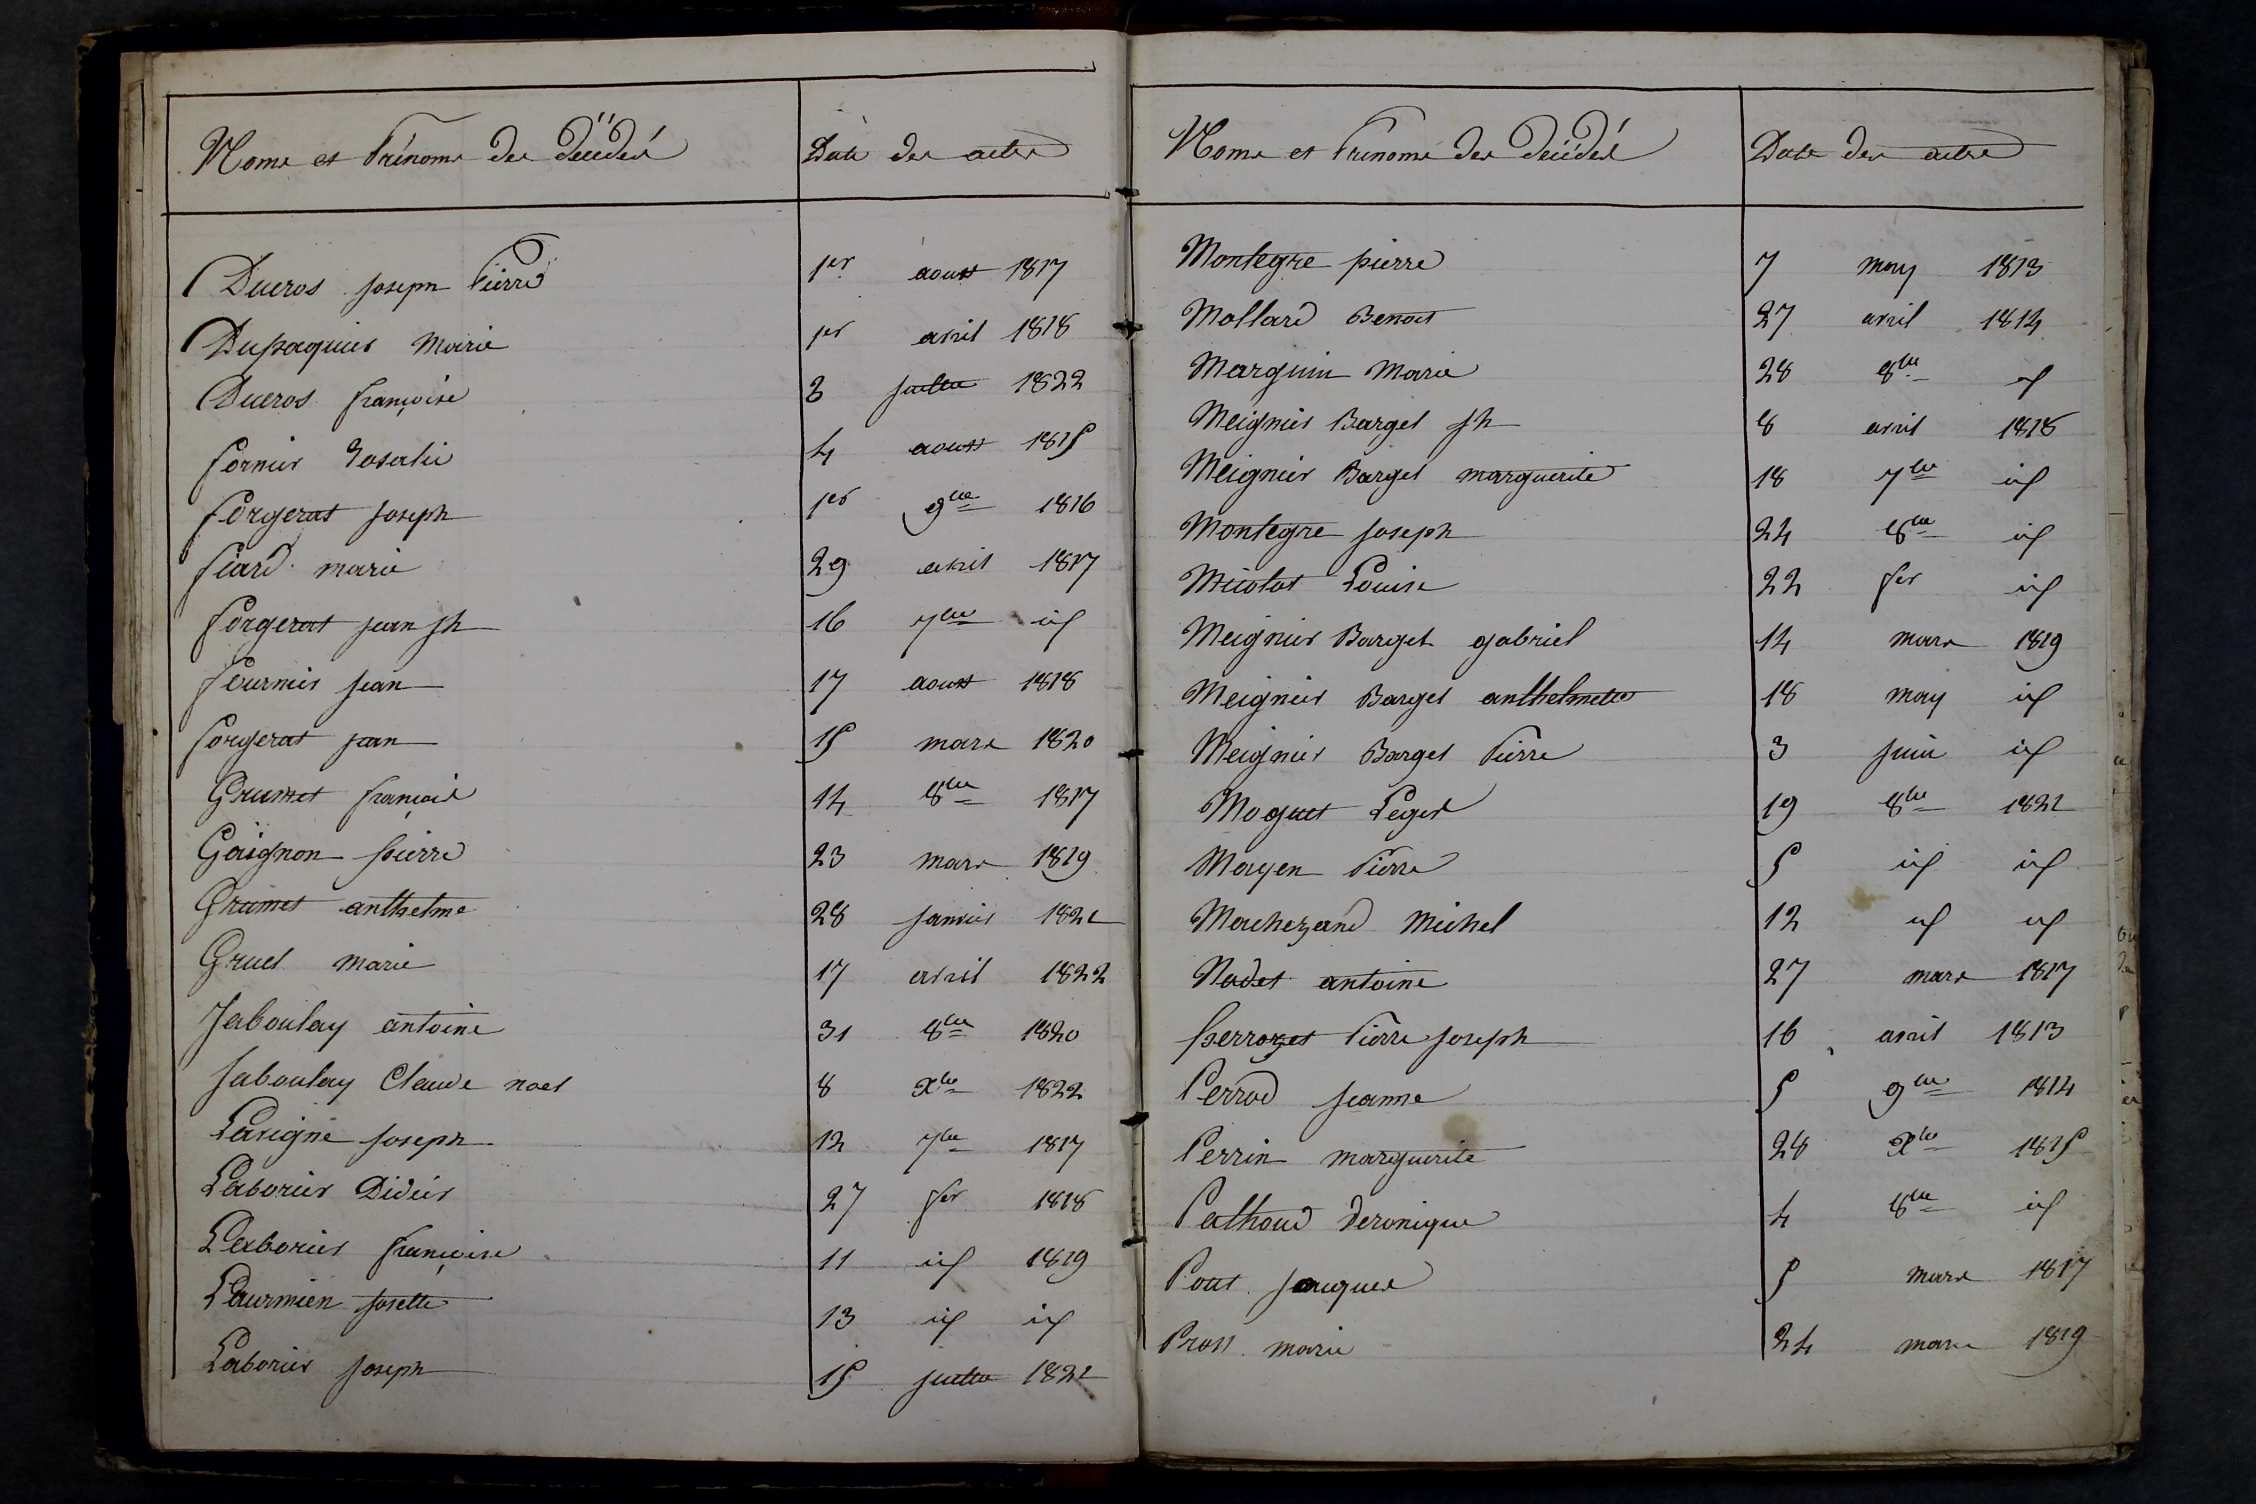 Noms et Prénoms des Décédés Date des actes
Ducros Joseph Pierre 1er aoust 1817
Dupaquier Marie 1er avril 1818
Ducros françoise 3 juillet 1822
fornier Rosalie 4 aoust 1815
forgerat Joseph 1er 9bre 1816
fiard marie 29 avril 1817
forgerat jean jh 16 7bre id
fournier jean 17 aoust 1818
forgerat jean 15 mars 1820
Grumet françois 14 8bre 1817
Goignon pierre 23 mars 1819
Grumet anthelme 28 janvier 1821
Gruel marie 17 avril 1822
Jaboulay antoine 31 8bre 1820
Jaboulay Claude noel 8 xbre 1822
Lavigne Joseph 12 7bre 1817
Laborier Didier 27 fer 1818
Laborier françoise 11 id 1819
Laurmien Josette 13 id id
Laborier Joseph 15 juillet 1821
Noms et Prénoms des Décédés Date des actes
Montegre pierre 7 may 1813
Mollard Benoit 27 avril 1814
Marguin Marie 28 8bre id
Meignier Barget jh 8 avril 1818
Meignier Barget marguerite 18 7bre id
Montegre Joseph 24 8bre id
Micolot Louise 22 fer id
Meignier Barget gabriel 14 mars 1819
Meignier Barget anthelmette 18 may id
Meignier Barget Pierre 3 juin id
Moguet Leger 19 8bre 1821
Moyen Pierre 5 id id
Machezand Michel 12 id id
Nodet antoine 27 mars 1817
perrozet Pierre Joseph 16 avril 1813
Perrod jeanne 5 9bre 1814
Perrin marguerite 28 xbre 1815
Pathoud Veronique 4 8bre id
Pout jacques 5 mars 1817
Prost marie 24 mars 1819